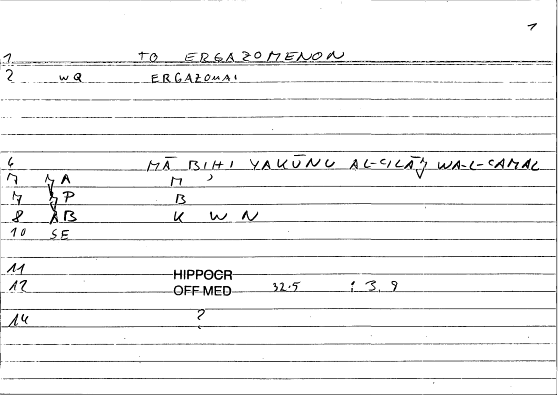 1
1 TO ERGAZOMENON
2 WQ ERGAZOMAI
6 MĀ BIHI YAKŪNU AL-CILĀJ WA-L-CAMAL
7 A M '
7 P B
8 AB K W N
10 SE
11 HIPPOCR
12 OFF MED 32.5 : 3. 9
14 ?